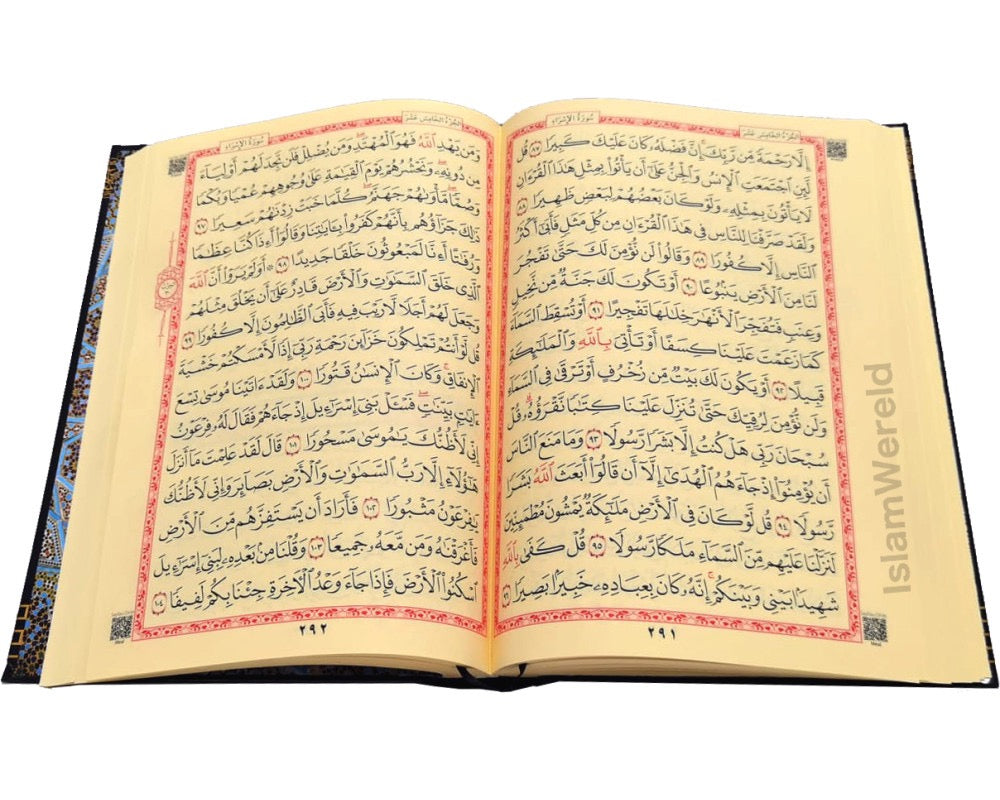 سُورَةُ الإِسْرَاءِ
الجُزْءُ الخَامِسَ عَشَرَ
إِلَّا رَحْمَةً مِّن رَّبِّكَ إِنَّ فَضْلَهُۥ كَانَ عَلَيْكَ كَبِيرًا ٨٧ قُل
لَّئِنِ ٱجْتَمَعَتِ ٱلْإِنسُ وَٱلْجِنُّ عَلَىٰٓ أَن يَأْتُوا۟ بِمِثْلِ هَٰذَا ٱلْقُرْءَانِ
لَا يَأْتُونَ بِمِثْلِهِۦ وَلَوْ كَانَ بَعْضُهُمْ لِبَعْضٍ ظَهِيرًا ٨٨
وَلَقَدْ صَرَّفْنَا لِلنَّاسِ فِى هَٰذَا ٱلْقُرْءَانِ مِن كُلِّ مَثَلٍ فَأَبَىٰٓ أَكْثَرُ
ٱلنَّاسِ إِلَّا كُفُورًا ٨٩ وَقَالُوا۟ لَن نُّؤْمِنَ لَكَ حَتَّىٰ تَفْجُرَ
لَنَا مِنَ ٱلْأَرْضِ يَنۢبُوعًا ٩٠ أَوْ تَكُونَ لَكَ جَنَّةٌ مِّن نَّخِيلٍ
وَعِنَبٍ فَتُفَجِّرَ ٱلْأَنْهَٰرَ خِلَٰلَهَا تَفْجِيرًا ٩١ أَوْ تُسْقِطَ ٱلسَّمَآءَ
كَمَا زَعَمْتَ عَلَيْنَا كِسَفًا أَوْ تَأْتِىَ بِٱللَّهِ وَٱلْمَلَٰٓئِكَةِ
قَبِيلًا ٩٢ أَوْ يَكُونَ لَكَ بَيْتٌ مِّن زُخْرُفٍ أَوْ تَرْقَىٰ فِى ٱلسَّمَآءِ
وَلَن نُّؤْمِنَ لِرُقِيِّكَ حَتَّىٰ تُنَزِّلَ عَلَيْنَا كِتَٰبًا نَّقْرَؤُهُۥ ۗ قُلْ
سُبْحَانَ رَبِّى هَلْ كُنتُ إِلَّا بَشَرًا رَّسُولًا ٩٣ وَمَا مَنَعَ ٱلنَّاسَ
أَن يُؤْمِنُوٓا۟ إِذْ جَآءَهُمُ ٱلْهُدَىٰٓ إِلَّآ أَن قَالُوٓا۟ أَبَعَثَ ٱللَّهُ بَشَرًا
رَّسُولًا ٩٤ قُل لَّوْ كَانَ فِى ٱلْأَرْضِ مَلَٰٓئِكَةٌ يَمْشُونَ مُطْمَئِنِّينَ
لَنَزَّلْنَا عَلَيْهِم مِّنَ ٱلسَّمَآءِ مَلَكًا رَّسُولًا ٩٥ قُلْ كَفَىٰ بِٱللَّهِ
شَهِيدًۢا بَيْنِى وَبَيْنَكُمْ ۚ إِنَّهُۥ كَانَ بِعِبَادِهِۦ خَبِيرًۢا بَصِيرًا ٩٦
٢٩١
سُورَةُ الإِسْرَاءِ
الجُزْءُ الخَامِسَ عَشَرَ
وَمَن يَهْدِ ٱللَّهُ فَهُوَ ٱلْمُهْتَدِ ۖ وَمَن يُضْلِلْ فَلَن تَجِدَ لَهُمْ أَوْلِيَآءَ
مِن دُونِهِۦ ۖ وَنَحْشُرُهُمْ يَوْمَ ٱلْقِيَٰمَةِ عَلَىٰ وُجُوهِهِمْ عُمْيًا وَبُكْمًا
وَصُمًّا ۖ مَّأْوَىٰهُمْ جَهَنَّمُ ۖ كُلَّمَا خَبَتْ زِدْنَٰهُمْ سَعِيرًا ٩٧
ذَٰلِكَ جَزَآؤُهُم بِأَنَّهُمْ كَفَرُوا۟ بِـَٔايَٰتِنَا وَقَالُوٓا۟ أَءِذَا كُنَّا عِظَٰمًا
وَرُفَٰتًا أَءِنَّا لَمَبْعُوثُونَ خَلْقًا جَدِيدًا ٩٨ ۞ أَوَلَمْ يَرَوْا۟ أَنَّ ٱللَّهَ
ٱلَّذِى خَلَقَ ٱلسَّمَٰوَٰتِ وَٱلْأَرْضَ قَادِرٌ عَلَىٰٓ أَن يَخْلُقَ مِثْلَهُمْ
وَجَعَلَ لَهُمْ أَجَلًا لَّا رَيْبَ فِيهِ فَأَبَى ٱلظَّٰلِمُونَ إِلَّا كُفُورًا ٩٩
قُل لَّوْ أَنتُمْ تَمْلِكُونَ خَزَآئِنَ رَحْمَةِ رَبِّىٓ إِذًا لَّأَمْسَكْتُمْ خَشْيَةَ
ٱلْإِنفَاقِ ۚ وَكَانَ ٱلْإِنسَٰنُ قَتُورًا ١٠٠ وَلَقَدْ ءَاتَيْنَا مُوسَىٰ تِسْعَ
ءَايَٰتٍۭ بَيِّنَٰتٍ ۖ فَسْـَٔلْ بَنِىٓ إِسْرَٰٓءِيلَ إِذْ جَآءَهُمْ فَقَالَ لَهُۥ فِرْعَوْنُ
إِنِّى لَأَظُنُّكَ يَٰمُوسَىٰ مَسْحُورًا ١٠١ قَالَ لَقَدْ عَلِمْتَ مَآ أَنزَلَ
هَٰٓؤُلَآءِ إِلَّا رَبُّ ٱلسَّمَٰوَٰتِ وَٱلْأَرْضِ بَصَآئِرَ وَإِنِّى لَأَظُنُّكَ
يَٰفِرْعَوْنُ مَثْبُورًا ١٠٢ فَأَرَادَ أَن يَسْتَفِزَّهُم مِّنَ ٱلْأَرْضِ
فَأَغْرَقْنَٰهُ وَمَن مَّعَهُۥ جَمِيعًا ١٠٣ وَقُلْنَا مِنۢ بَعْدِهِۦ لِبَنِىٓ إِسْرَٰٓءِيلَ
ٱسْكُنُوا۟ ٱلْأَرْضَ فَإِذَا جَآءَ وَعْدُ ٱلْءَاخِرَةِ جِئْنَا بِكُمْ لَفِيفًا ١٠٤
٢٩٢
IslamWereld